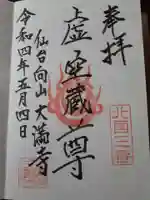 奉拝
虚空蔵尊
仙台向山 大満寺
令和四年五月四日